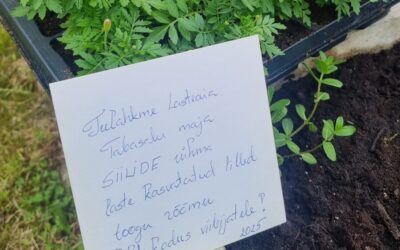 Teelahkme Lasteaia
Tabasalu maja
SIILIDE rühma
laste kasvatatud lilled
toogu rõõmu
kodus viibijatele!
2025